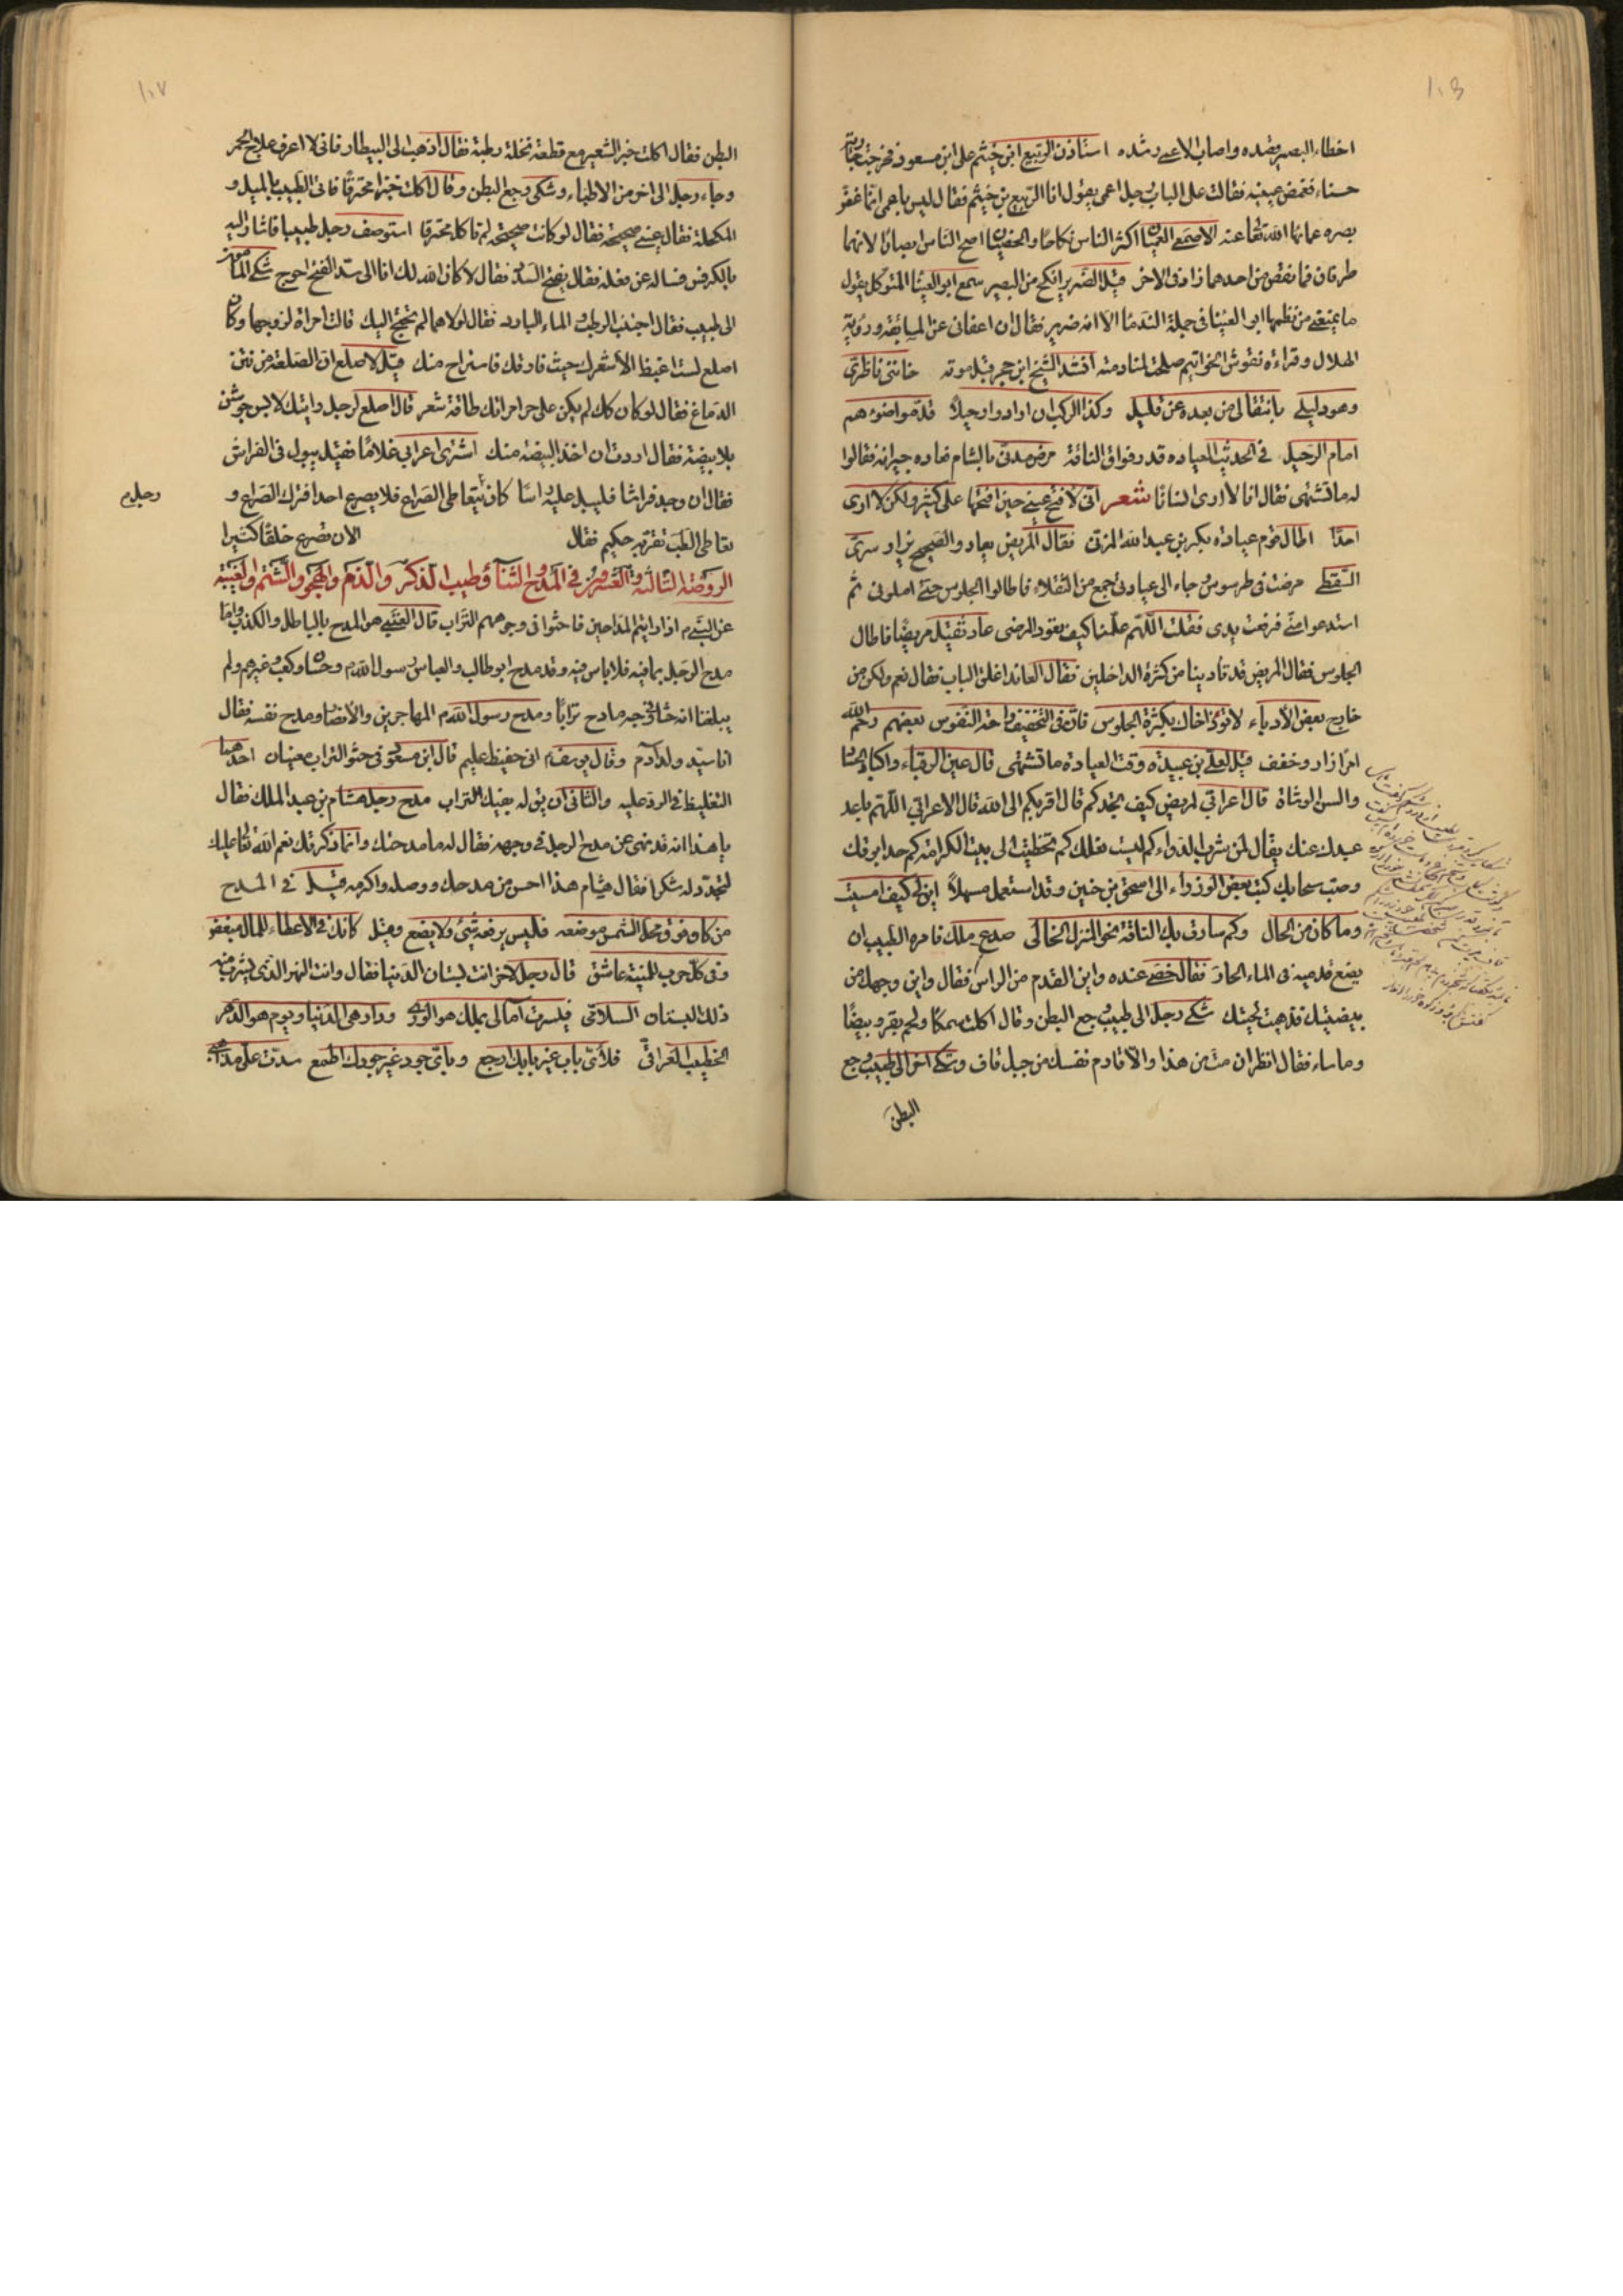 ١٠٦
اخطاء البصير قصده واصاب الاعمى رشده استاذن الربيع ابن خيثم على ابن مسعود فخرجت جارية
حسناء فغمض عينيه فقالت على الباب رجل اعمى يقول انا الربيع بن خيثم فقال ليس باعمى انما غض
بصره عما نهاه الله تعالى عنه الاصمعى العميان اكثر الناس نكاحا والخصيان اصح الناس ابصارا لانهما
طرفان فما نقص من احدهما زاد فى الاخر قيل الضرير انكح من البصير سمع ابو العينا المتوكل يقول
ما يمنعنى من نظم ابو العينا فى جملة الندما الا انه ضرير فقال ان اعفانى عن المسابقة ورؤية
الهلال وقراءة نقوش الخواتيم صلحت لمنادمته انشد الشيخ ابن حجر قبل موته خانتنى ناظرى
وهو دليلى بانتقالى من بعده عن قليل وكذا الركب ان ارادوا رحيلا قدموا ضوءهم
امام الرحيل فى الحديث العياده قدر فواق الناقة مرض مدنى بالشام فعاده جيرانه فقالوا
له ما تشتهى فقال انا لا ارى انسانا شعر انى لافتح عينى حين افتحها على كثير ولكن لا ارى
احدا اطال قوم عيادة بكر بن عبد الله المزنى فقال المريض يعاد والصحيح يزار سرى
السقطى مرضت فى طرسوس جاء الى عيادتى جمع من الثقلاء فاطالوا الجلوس حتى املونى ثم
استدعوا منى فرفعت يدى فقلت اللهم علمنا كيف نعود المرضى عاد ثقيل مريضا فاطال
الجلوس فقال المريض قد تأذينا من كثرة الداخلين فقال العائد اغلق الباب فقال نعم ولكن من
خارج بعض الأدباء لا تؤذ اخاك بكثرة الجلوس فان فى التخفيف راحة النفوس بعضهم رحم الله
امرا زار وخفف قيل لعلى بن عبيدة وقت العيادة ما تشتهى قال عين الرقباء واكباد الحساد
والسن الوشاة قال اعرابى لمريض كيف تجدكم قال اقربكم الى الله قال الاعرابى اللهم باعد
عبدك عنك يقال لمن شرب الدواء كم لبيت نعلك كم تخطيت الى بيت الكرامة كم حدا بوقك
وصب سحابك كتب بعض الوزراء الى اسحق بن حنين وقد استعمل مسهلا ابن لى كيف امسيت
وما كان من الحال وكم سارت بك الناقة نحو المنزل الخالى صدع ملك فامره الطبيب ان
يضع قدميه فى الماء الحار فقال خصى عنده واين القدم من الراس فقال واين وجهك من
بيضتيك قد ذهبت لحيتك شكى رجل الى طبيب وجع البطن وقال اكلت سمكا ولحم بقر وبيضا
وما ساء فقال انظر ان مت من هذا والا فارم نفسك من جبل قاف وشكى اخر الى طبيب وجع
البطن
١٠٧
البطن فقال اكلت خبز الشعير مع قطعة نخلة رطبة فقال اذهب الى البيطار فانى لا اعرف علاج الحمر
وجاء رجل الى اخر من الاطباء وشكى وجع البطن وقال اكلت خبزا محترقا فاتى الطبيب بالميل و
المكحلة فقال عينى صحيحة فقال لو كانت صحيحة لم تاكل محترقا استوصف رجل طبيبا فاشار اليه
بالكرفس فساله عن فعله فقال يفتح السدد فقال لا كان الله لك انا الى سد الفتح احوج شكى المأمون
الى طبيب فقال اجتنب الرطب والماء البارد فقال لولاهما لم نحتج اليك قالت امراة لزوجها وكان
اصلع لست اغبط الا شعرك حيث فارقك فاستراح منك قيل لاصلع ان الصلعة من نتن
الدماغ فقال لو كان كك لم يكن على حر امراتك طاقة شعر قال اصلع لرجل رايتك لابس جوشن
بلا بيضة فقال اردت ان اخذ البيضة منك اشترى اعرابى غلاما فقيل يبول فى الفراش
فقال ان وجد فراشا فليبل عليه
كان رجل يتعاطى الصراع فلا يصرع احدا فترك الصراع و
تعاطى الطب فمر به حكيم فقال الان تصرع خلقا كثيرا
الروضة الثالثة والعشرون فى المدح والثناء وطيب الذكر والذم والهجو والشتم والغيبة
عن النبى م اذا رايتم المداحين فاحثوا فى وجوههم التراب قال العتبى هو المدح بالباطل والكذب واما
مدح الرجل بما فيه فلا باس فيه وقد مدح ابو طالب والعباس رسول الله م وحسان وكعب وغيرهم ولم
يبلغنا انه حثا فى وجه مادح ترابا ومدح رسول الله م المهاجرين والانصار ومدح نفسه فقال
انا سيد ولد آدم وقال يوسف م انى حفيظ عليم قال ابن مسعود فى حثو التراب معنيان احدهما
التغليظ فى الرد عليه والثانى ان يق له بفيك التراب مدح رجل هشام بن عبد الملك فقال
يا هذا انه قد نهى عن مدح الرجل فى وجهه فقال له ما مدحتك وانما ذكرتك نعم الله تعالى عليك
لتجدد له شكرا فقال هشام هذا احسن من مدحك ووصله واكرمه قيل فى المدح
من كان فوق محل الشمس موضعه فليس يرفعه شئ ولا يضع وقيل كانك فى الاعطاء للمال مبغض
وفى كل حرب للمنية عاشق قال رجل لاخر انت بستان الدنيا فقال وانت النهر الذى يشرب منه
ذلك البستان السلامى فبشرت آمالى بملك هو الورى ودار هى الدنيا ويوم هو الدهر
الخطيب العراقى فلأى باب غير بابك ارجع وباى جود غير جودك اطمع سدت على مذاهبى